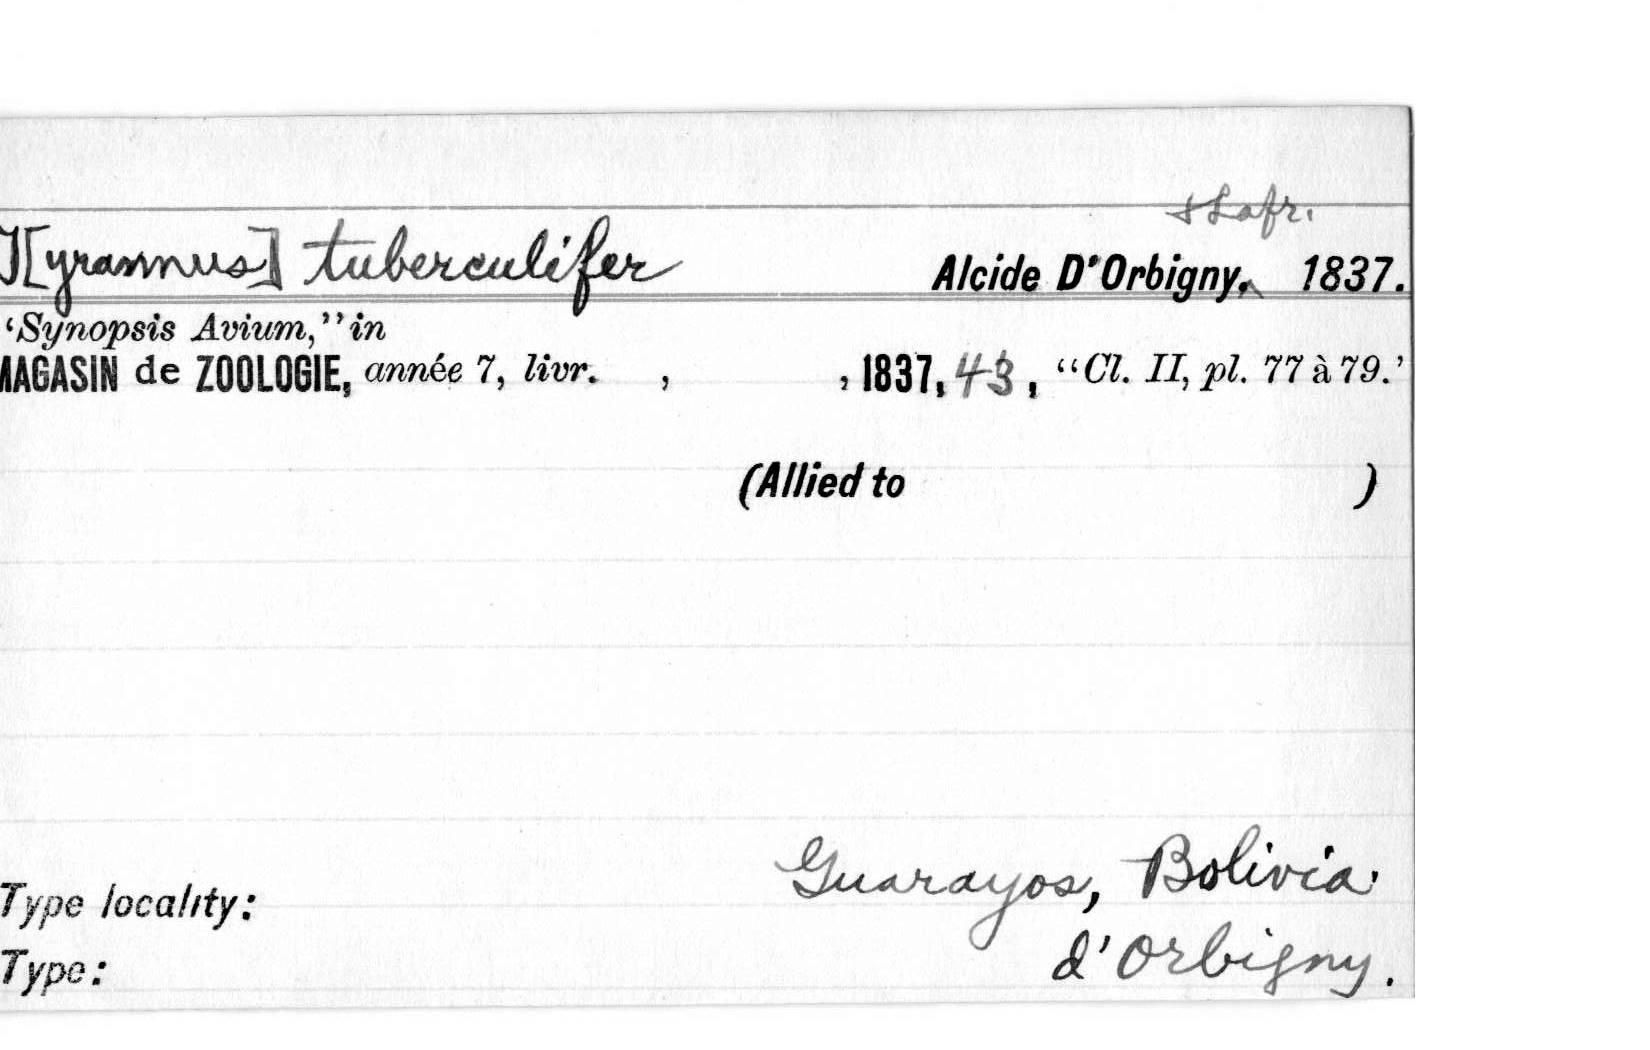 & Lafr.
T[yrannus] tuberculifer Alcide D'Orbigny. 1837.
‘Synopsis Avium,’’ in
MAGASIN de ZOOLOGIE, année 7, livr. , , 1837, 43, “Cl. II, pl. 77 à 79.’
(Allied to )
Type locality: Guarayos, Bolivia.
Type: d'Orbigny.